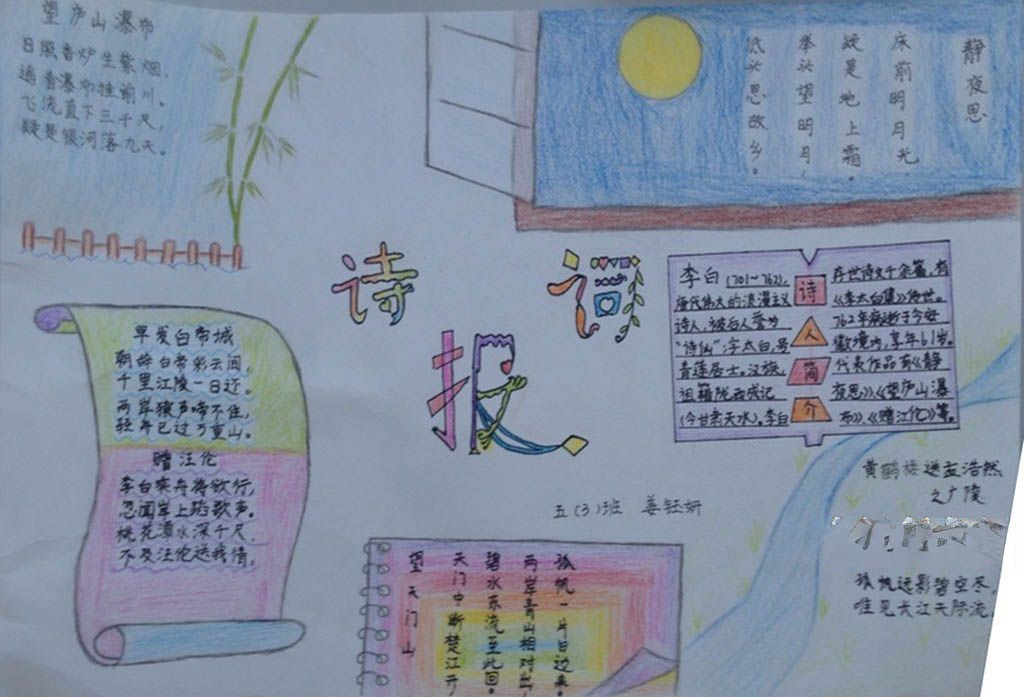 望庐山瀑布
日照香炉生紫烟，
遥看瀑布挂前川。
飞流直下三千尺，
疑是银河落九天。
静夜思
床前明月光
疑是地上霜。
举头望明月，
低头思故乡。
诗词
报
早发白帝城
朝辞白帝彩云间，
千里江陵一日还。
两岸猿声啼不住，
轻舟已过万重山。
赠汪伦
李白乘舟将欲行，
忽闻岸上踏歌声。
桃花潭水深千尺，
不及汪伦送我情。
诗人简介
李白（701～762），
唐代伟大的浪漫主义
诗人，被后人誉为
“诗仙”字太白，号
青莲居士。汉族。
祖籍陇西成记
（今甘肃天水）。李白
存世诗文千余篇，有
《李太白集》传世。
762年病逝于今安
徽境内，享年61岁。
代表作品有《静
夜思》、《望庐山瀑
布》、《赠汪伦》等。
五（3）班 姜钰妍
黄鹤楼送孟浩然
之广陵
孤帆远影碧空尽，
唯见长江天际流。
望天门山
天门中断楚江开
碧水东流至此回。
两岸青山相对出，
孤帆一片日边来。